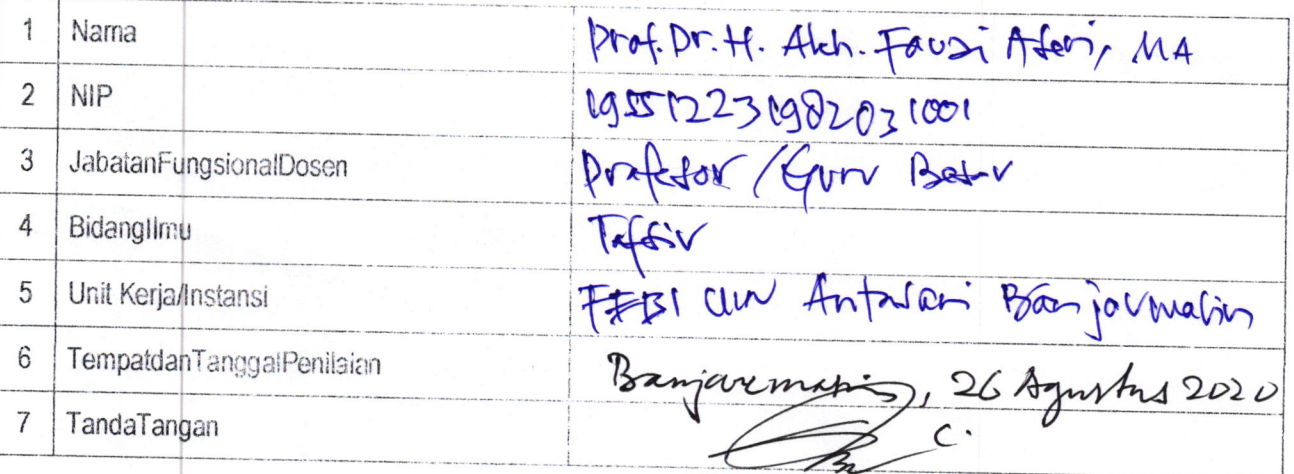 1 Nama Prof. Dr. H. Akh. Fauzi Aseri, MA
2 NIP 195512231982031001
3 JabatanFungsionalDosen Profesor / Guru Besar
4 BidangIlmu Tafsir
5 Unit Kerja/Instansi FEBI UIN Antasari Banjarmasin
6 TempatdanTanggalPenilaian Banjarmasin, 26 Agustus 2020
7 TandaTangan